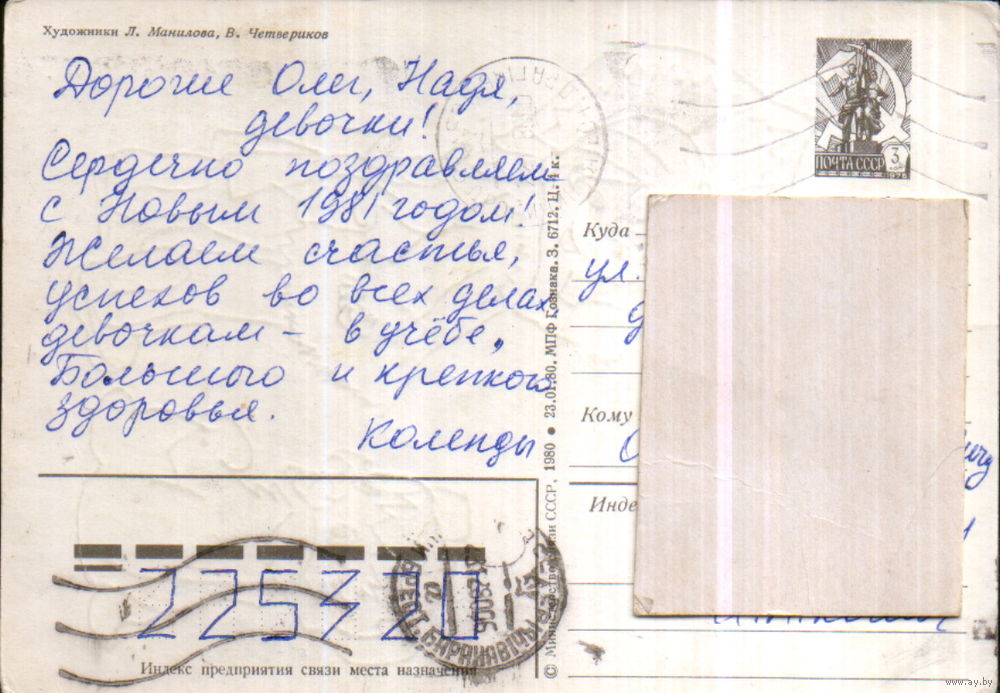 Художники Л. Манилова, В. Четвериков
Дорогие Олег, Надя,
девочки!
Сердечно поздравляем
с Новым 1981 годом!
Желаем счастья,
успехов во всех делах,
девочкам – в учёбе,
Большого и крепкого
здоровья.
Коленды
225320
Индекс предприятия связи места назначения
© Министерство связи СССР, 1980 ● 23.01.80. МПФ Гознака. З. 6712. Ц. 4 к.
ПОЧТА СССР
3
1976
Куда
ул.
Кому
Инде
www.ay.by